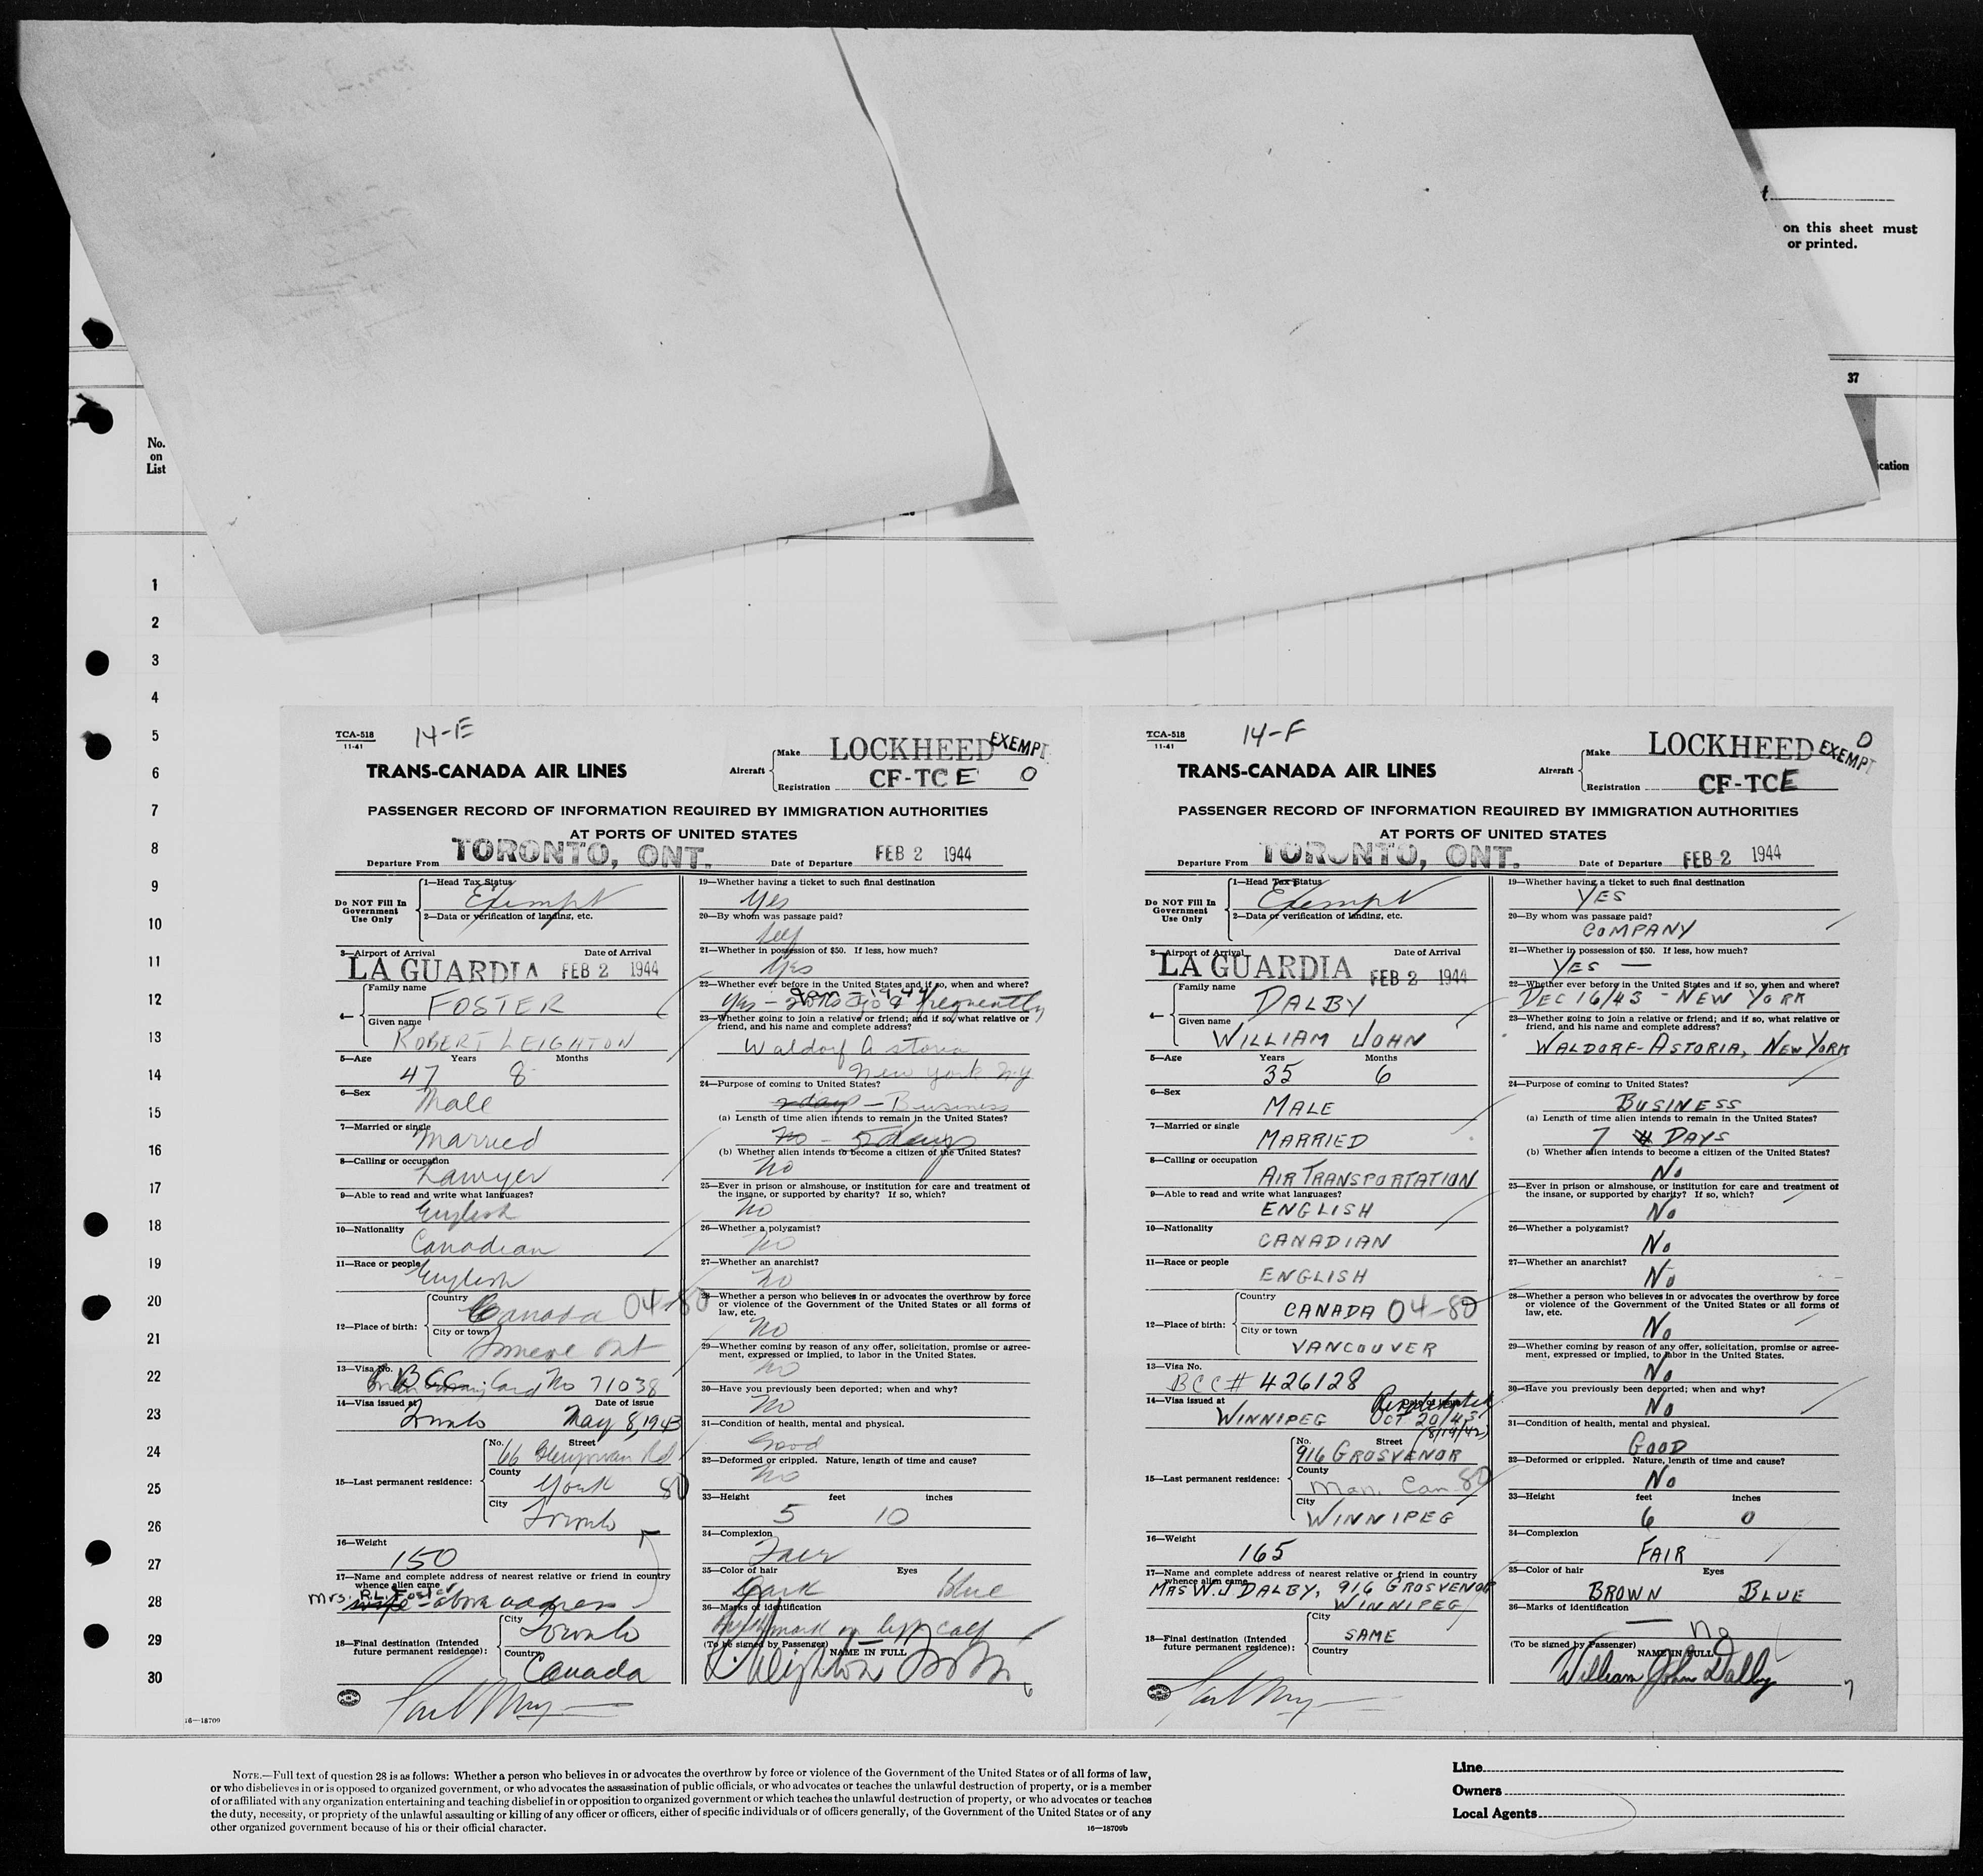 on this sheet must
or printed.
37
No.
on
List
ication
1
2
3
4
5
6
7
8
9
10
11
12
13
14
15
16
17
18
19
20
21
22
23
24
25
26
27
28
29
30
16—18709
TCA-518
11-41
14-E
TRANS-CANADA AIR LINES
Aircraft
Make LOCKHEED EXEMPT
Registration CF-TCE O
PASSENGER RECORD OF INFORMATION REQUIRED BY IMMIGRATION AUTHORITIES
AT PORTS OF UNITED STATES
Departure From TORONTO, ONT. Date of Departure FEB 2 1944
Do NOT Fill In
Government
Use Only
1—Head Tax Status
Exempt
2—Data or verification of landing, etc.
3—Airport of Arrival Date of Arrival
LA GUARDIA FEB 2 1944
4— Family name
FOSTER
Given name
ROBERT LEIGHTON
5—Age Years Months
47 8
6—Sex
Male
7—Married or single
Married
8—Calling or occupation
Lawyer
9—Able to read and write what languages?
English
10—Nationality
Canadian
11—Race or people
English
12—Place of birth:
Country
Canada 04-80
City or town
Simcoe Ont
13—Visa No.
BCC Card No 71038
14—Visa issued at Date of issue
Toronto May 8, 1943
15—Last permanent residence:
No. Street
66 Rd
County
York 80
City
Toronto
16—Weight
150
17—Name and complete address of nearest relative or friend in country
whence alien came
Mrs. R.L. Foster
wife - above address
18—Final destination (Intended
future permanent residence):
City
Toronto
Country
Canada
19—Whether having a ticket to such final destination
Yes
20—By whom was passage paid?
Self
21—Whether in possession of $50. If less, how much?
Yes
22—Whether ever before in the United States and if so, when and where?
Jan - 1944
Yes - frequently
23—Whether going to join a relative or friend; and if so, what relative or
friend, and his name and complete address?
Waldorf Astoria
New York N.Y
24—Purpose of coming to United States?
2 days - Business
(a) Length of time alien intends to remain in the United States?
No - 5 days
(b) Whether alien intends to become a citizen of the United States?
No
25—Ever in prison or almshouse, or institution for care and treatment of
the insane, or supported by charity? If so, which?
No
26—Whether a polygamist?
No
27—Whether an anarchist?
No
28—Whether a person who believes in or advocates the overthrow by force
or violence of the Government of the United States or all forms of
law, etc.
No
29—Whether coming by reason of any offer, solicitation, promise or agree-
ment, expressed or implied, to labor in the United States.
No
30—Have you previously been deported; when and why?
No
31—Condition of health, mental and physical.
Good
32—Deformed or crippled. Nature, length of time and cause?
No
33—Height feet inches
5 10
34—Complexion
Fair
35—Color of hair Eyes
Dark Blue
36—Marks of identification
Birthmark on left calf
(To be signed by Passenger) NAME IN FULL
R. Leighton Foster
6
TCA-518
11-41
14-F
TRANS-CANADA AIR LINES
Aircraft
Make LOCKHEED EXEMPT O
Registration CF-TCE
PASSENGER RECORD OF INFORMATION REQUIRED BY IMMIGRATION AUTHORITIES
AT PORTS OF UNITED STATES
Departure From TORONTO, ONT. Date of Departure FEB 2 1944
Do NOT Fill In
Government
Use Only
1—Head Tax Status
Exempt
2—Data or verification of landing, etc.
3—Airport of Arrival Date of Arrival
LA GUARDIA FEB 2 1944
4— Family name
DALBY
Given name
WILLIAM JOHN
5—Age Years Months
35 6
6—Sex
MALE
7—Married or single
MARRIED
8—Calling or occupation
AIR TRANSPORTATION
9—Able to read and write what languages?
ENGLISH
10—Nationality
CANADIAN
11—Race or people
ENGLISH
12—Place of birth:
Country
CANADA 04-80
City or town
VANCOUVER
13—Visa No.
BCC# 426128
14—Visa issued at Date of issue
WINNIPEG OCT 20/43
(8/19/42)
15—Last permanent residence:
No. Street
916 GROSVENOR
County
Man. Can 80
City
WINNIPEG
16—Weight
165
17—Name and complete address of nearest relative or friend in country
whence alien came
MRS W.J DALBY, 916 GROSVENOR
WINNIPEG
18—Final destination (Intended
future permanent residence):
City
SAME
Country
19—Whether having a ticket to such final destination
YES
20—By whom was passage paid?
COMPANY
21—Whether in possession of $50. If less, how much?
YES —
22—Whether ever before in the United States and if so, when and where?
DEC 16/43 - NEW YORK
23—Whether going to join a relative or friend; and if so, what relative or
friend, and his name and complete address?
WALDORF-ASTORIA, NEW YORK
24—Purpose of coming to United States?
BUSINESS
(a) Length of time alien intends to remain in the United States?
7 DAYS
(b) Whether alien intends to become a citizen of the United States?
No
25—Ever in prison or almshouse, or institution for care and treatment of
the insane, or supported by charity? If so, which?
No
26—Whether a polygamist?
No
27—Whether an anarchist?
No
28—Whether a person who believes in or advocates the overthrow by force
or violence of the Government of the United States or all forms of
law, etc.
No
29—Whether coming by reason of any offer, solicitation, promise or agree-
ment, expressed or implied, to labor in the United States.
No
30—Have you previously been deported; when and why?
No
31—Condition of health, mental and physical.
GOOD
32—Deformed or crippled. Nature, length of time and cause?
No
33—Height feet inches
6 0
34—Complexion
FAIR
35—Color of hair Eyes
BROWN BLUE
36—Marks of identification
— no
(To be signed by Passenger) NAME IN FULL
William John Dalby
7
NOTE.—Full text of question 28 is as follows: Whether a person who believes in or advocates the overthrow by force or violence of the Government of the United States or of all forms of law,
or who disbelieves in or is opposed to organized government, or who advocates the assassination of public officials, or who advocates or teaches the unlawful destruction of property, or is a member
of or affiliated with any organization entertaining and teaching disbelief in or opposition to organized government or which teaches the unlawful destruction of property, or who advocates or teaches
the duty, necessity, or propriety of the unlawful assaulting or killing of any officer or officers, either of specific individuals or of officers generally, of the Government of the United States or of any
other organized government because of his or their official character.
16—18709b
Line
Owners
Local Agents